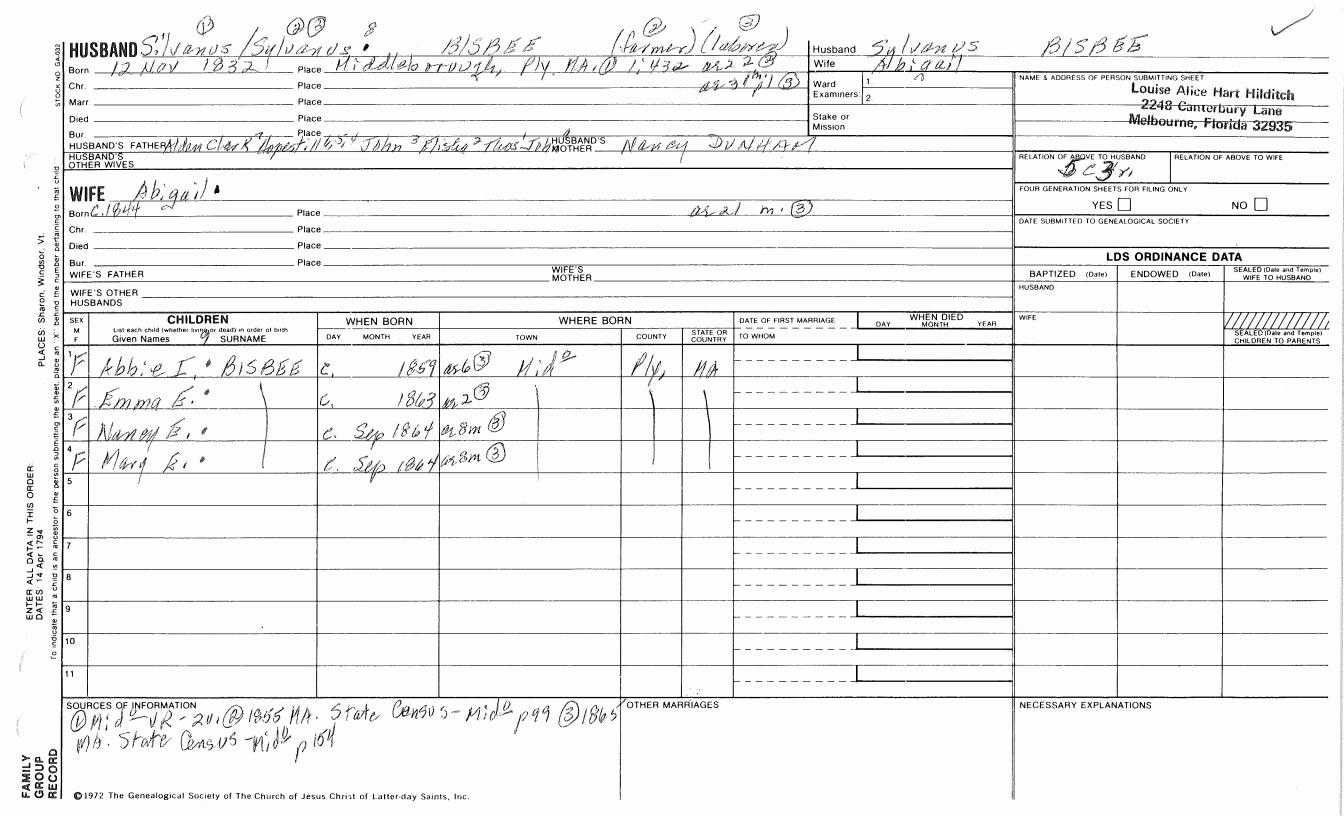 HUSBAND Silvanus /Sylvanus ① ② ③ 8 BISBEE (farmer) ② (laborer) ③
Born 12 Nov 1832 Place Middleborough, Ply. MA. ① 1:432 as 22 ②
Chr. Place as 31 m ③
Marr Place
Died Place
Bur. Place
HUSBAND'S FATHER Alden Clark 7 John Elisha HUSBAND'S MOTHER Nancy DUNHAM
HUSBAND'S OTHER WIVES
Husband Sylvanus BISBEE
Wife Abigail
Ward 1
Examiners: 2
Stake or Mission
NAME & ADDRESS OF PERSON SUBMITTING SHEET
Louise Alice Hart Hilditch
2248 Canterbury Lane
Melbourne, Florida 32935
RELATION OF ABOVE TO HUSBAND RELATION OF ABOVE TO WIFE
FOUR GENERATION SHEETS FOR FILING ONLY
YES NO
DATE SUBMITTED TO GENEALOGICAL SOCIETY
WIFE Abigail
Born c.1844 Place as 21 m. ③
Chr. Place
Died Place
Bur. Place
WIFE'S FATHER WIFE'S MOTHER
WIFE'S OTHER HUSBANDS
LDS ORDINANCE DATA
BAPTIZED (Date) ENDOWED (Date) SEALED (Date and Temple) WIFE TO HUSBAND
HUSBAND
WIFE
SEALED (Date and Temple) CHILDREN TO PARENTS
SEX M F CHILDREN WHEN BORN WHERE BORN DATE OF FIRST MARRIAGE WHEN DIED
List each child (whether living or dead) in order of birth
Given Names 9 SURNAME DAY MONTH YEAR TOWN COUNTY STATE OR COUNTRY TO WHOM DAY MONTH YEAR
1 F Abbie I. BISBEE c. 1859 as 6 ③ Mido Ply, MA
2 F Emma E. c. 1863 as 2 ③
3 F Nancy E. c. Sep 1864 as 8m ③
4 F Mary E. c. Sep 1864 as 8m ③
5
6
7
8
9
10
11
SOURCES OF INFORMATION OTHER MARRIAGES NECESSARY EXPLANATIONS
① Mido VR - 2v. ② 1855 MA. State Census - Mido p99 ③ 1865
MA. State Census - Mido p 154
©1972 The Genealogical Society of The Church of Jesus Christ of Latter-day Saints, Inc.
STOCK NO.
ENTER ALL DATA IN THIS ORDER:
DATES: 14 Apr 1794 PLACES: Sharon, Windsor, Vt.
To indicate that a child is an ancestor of the person submitting the sheet, place an "X" behind the number pertaining to that child
FAMILY
GROUP
RECORD